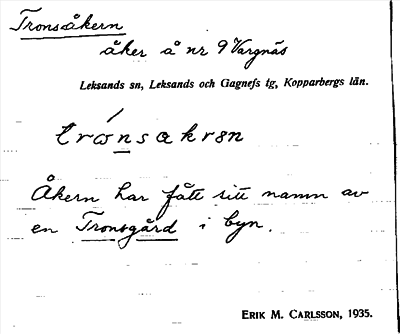 Tronsåkern
åker å nr 9 Vargnäs
Leksands sn, Leksands och Gagnefs tg, Kopparbergs län.
trånsakrən
Åkern har fått sitt namn av
en Tronsgård i byn.
ERIK M. CARLSSON, 1935.